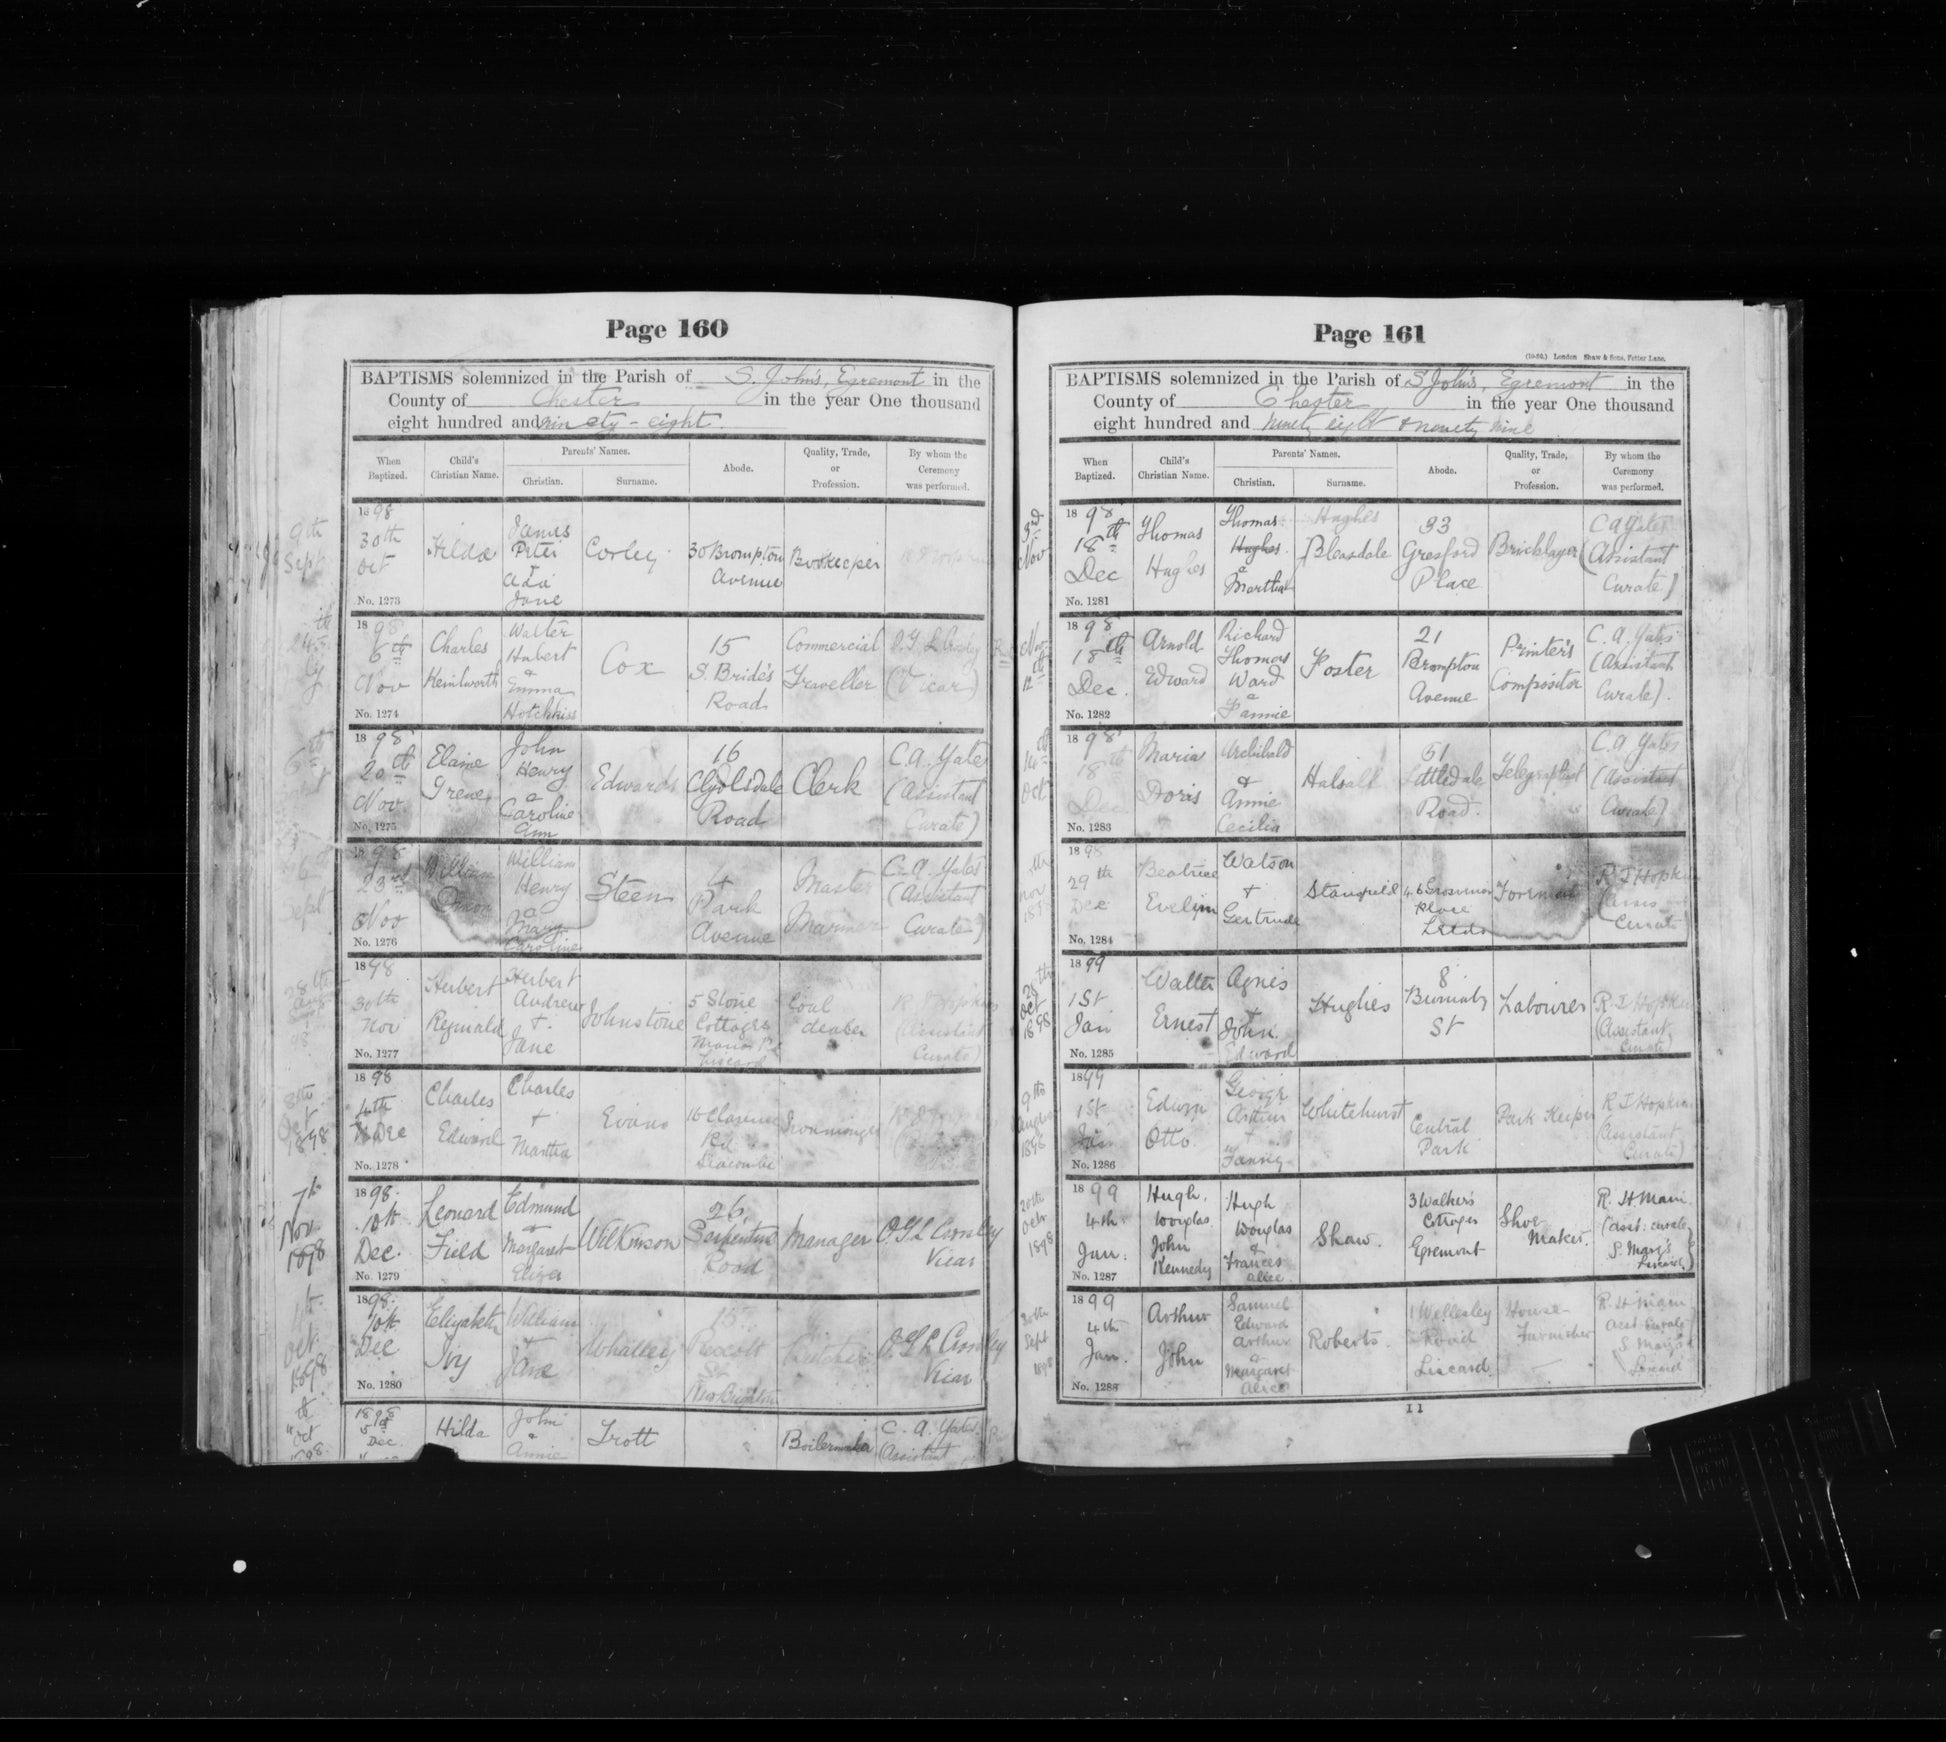 Page 160
BAPTISMS solemnized in the Parish of S. John's, Egremont in the
County of Chester in the year One thousand
eight hundred and ninety-eight.
When Baptized. Child's Christian Name. Parents' Names. Christian. Surname. Abode. Quality, Trade, or Profession. By whom the Ceremony was performed.
9th
Sept
1898
30th
Oct
No. 1273
Hilda
James
Peter
&
Ada
Jane
Corley
30 Brompton
Avenue
Bookeeper
24th
1898
6th
Nov
No. 1274
Charles
Kenilworth
Walter
Hubert
&
Emma
Hotchkiss
Cox
15
S. Bride's
Road
Commercial
Traveller
(Vicar)
1898
20th
Nov
No. 1275
Elaine
Irene
John
Henry
&
Caroline
Ann
Edwards
16
Clydesdale
Road
Clerk
C. A. Yates
(Assistant
Curate)
Sept
1898
23rd
Nov
No. 1276
William
William
Henry
&
Mary
Caroline
Steen
4
Park
Avenue
Master
Mariner
C. A. Yates
(Assistant
Curate)
28th
Aug
98
1898
30th
Nov
No. 1277
Herbert
Reginald
Herbert
Andrew
+
Jane
Johnstone
5 Stone
Cottages
Manor Rd
Liscard
Coal
dealer
R I Hopkins
(Assistant
Curate)
8th
Oct
1898
1898
4th
Dec
No. 1278
Charles
Edward
Charles
+
Martha
Evans
16 Clarence
Rd
Seacombe
Ironmonger
7th
Nov
1898
1898
10th
Dec.
No. 1279
Leonard
Field
Edmund
&
Margaret
Eliza
Wilkinson
26
Serpentine
Road
Manager
Vicar
Oct
1898
1898
10th
Dec
No. 1280
Elizabeth
Ivy
William
&
Jane
Whalley
15
Prescott
St
New Brighton
Butcher
Vicar
Oct
1898
1898
Dec.
Hilda
John
&
Annie
Trott
Boilermaker
C. A. Yates
(Assistant
Page 161
(10-96.) London Shaw & Sons, Fetter Lane.
BAPTISMS solemnized in the Parish of S. John's, Egremont in the
County of Chester in the year One thousand
eight hundred and ninety eight & ninety nine
When Baptized. Child's Christian Name. Parents' Names. Christian. Surname. Abode. Quality, Trade, or Profession. By whom the Ceremony was performed.
3rd
Nov
1898
18th
Dec
No. 1281
Thomas
Hughes
Thomas
Hughes
&
Martha
Hughes
Bleasdale
33
Gresford
Place
Bricklayer
C A Yates
(Assistant
Curate)
Nov
12th
1898
18th
Dec.
No. 1282
Arnold
Edward
Richard
Thomas
Ward
&
Fannie
Foster
21
Brompton
Avenue
Printer's
Compositor
C. A. Yates
(Assistant
Curate).
14th
Oct
1898
18th
Dec
No. 1283
Maria
Doris
Archibald
&
Annie
Cecilia
Halsall
51
Littledale
Road.
Telegraphist
C. A. Yates
(Assistant
Curate)
Nov
1898
29th
Dec
No. 1284
Beatrice
Evelyn
Watson
+
Gertrude
Stansfield
46 Grosvenor
Place
Leeds
Foreman
R I Hopkins
Curate
Oct
1898
1899
1st
Jan
No. 1285
Walter
Ernest
Agnes
+
John
Edward
Hughes
8
Burnaby
St
Labourer
R I Hopkins
(Assistant
Curate)
9th
August
1898
1899
1st
Jan
No. 1286
Edwin
Otto
George
Arthur
+
Fanny
Whitehurst
Central
Park
Park Keeper
R I Hopkins
(Assistant
Curate)
20th
Oct
1898
1899
4th
Jan:
No. 1287
Hugh.
Douglas
John
Kennedy
Hugh
Douglas
&
Frances
Alice
Shaw.
3 Walker's
Cottages
Egremont
Shoe
Maker.
(Asst: curate
S. Mary's
Liscard)
Sept
1898
1899
4th
Jan.
No. 1288
Arthur
John
Samuel
Edward
Arthur
&
Margaret
Alice
Roberts.
1 Wellesley
Road
Liscard.
House-
Furnisher
Asst Curate
S. Mary's
Liscard
11